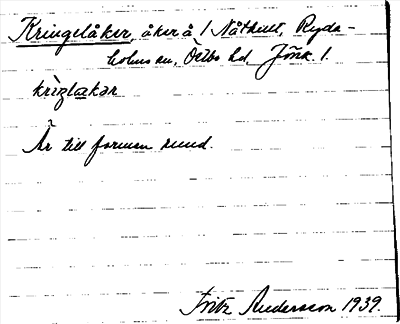 Kringelåker, åker å 1 Nåthult, Ryda-
holms sn, Östbo hd, Jönk. l.
krìŋlakər
Är till formen rund.
Fritz Andersson 1939.